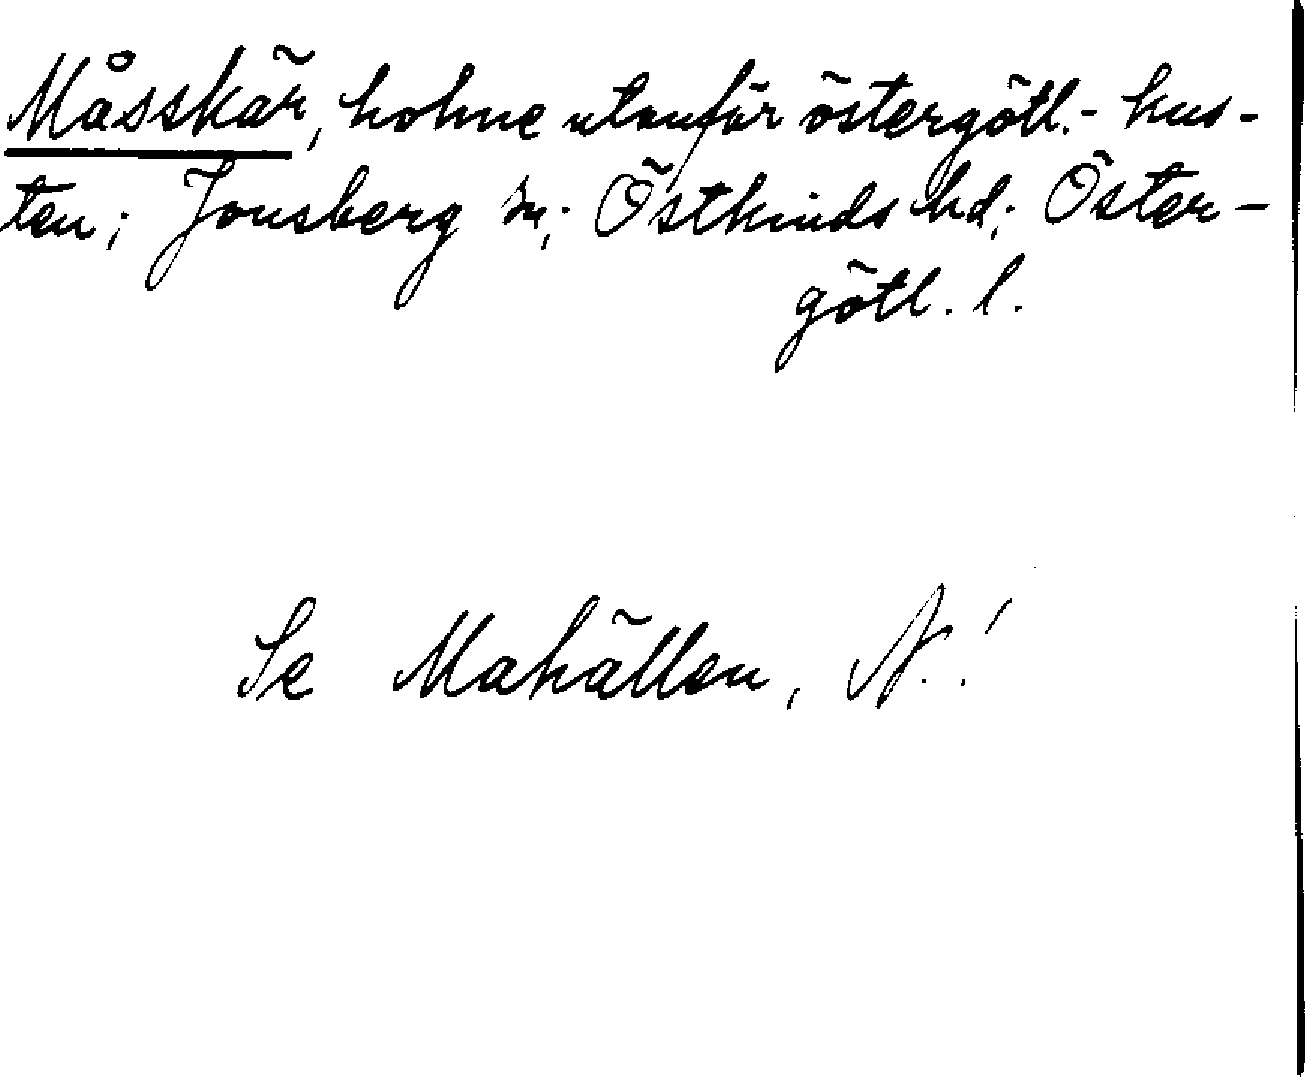 Måsskär, holme utanför östergötl.- kus-
ten; Jonsberg sn; Östkinds hd; Öster-
götl. l.
Se Mahällen, N.!